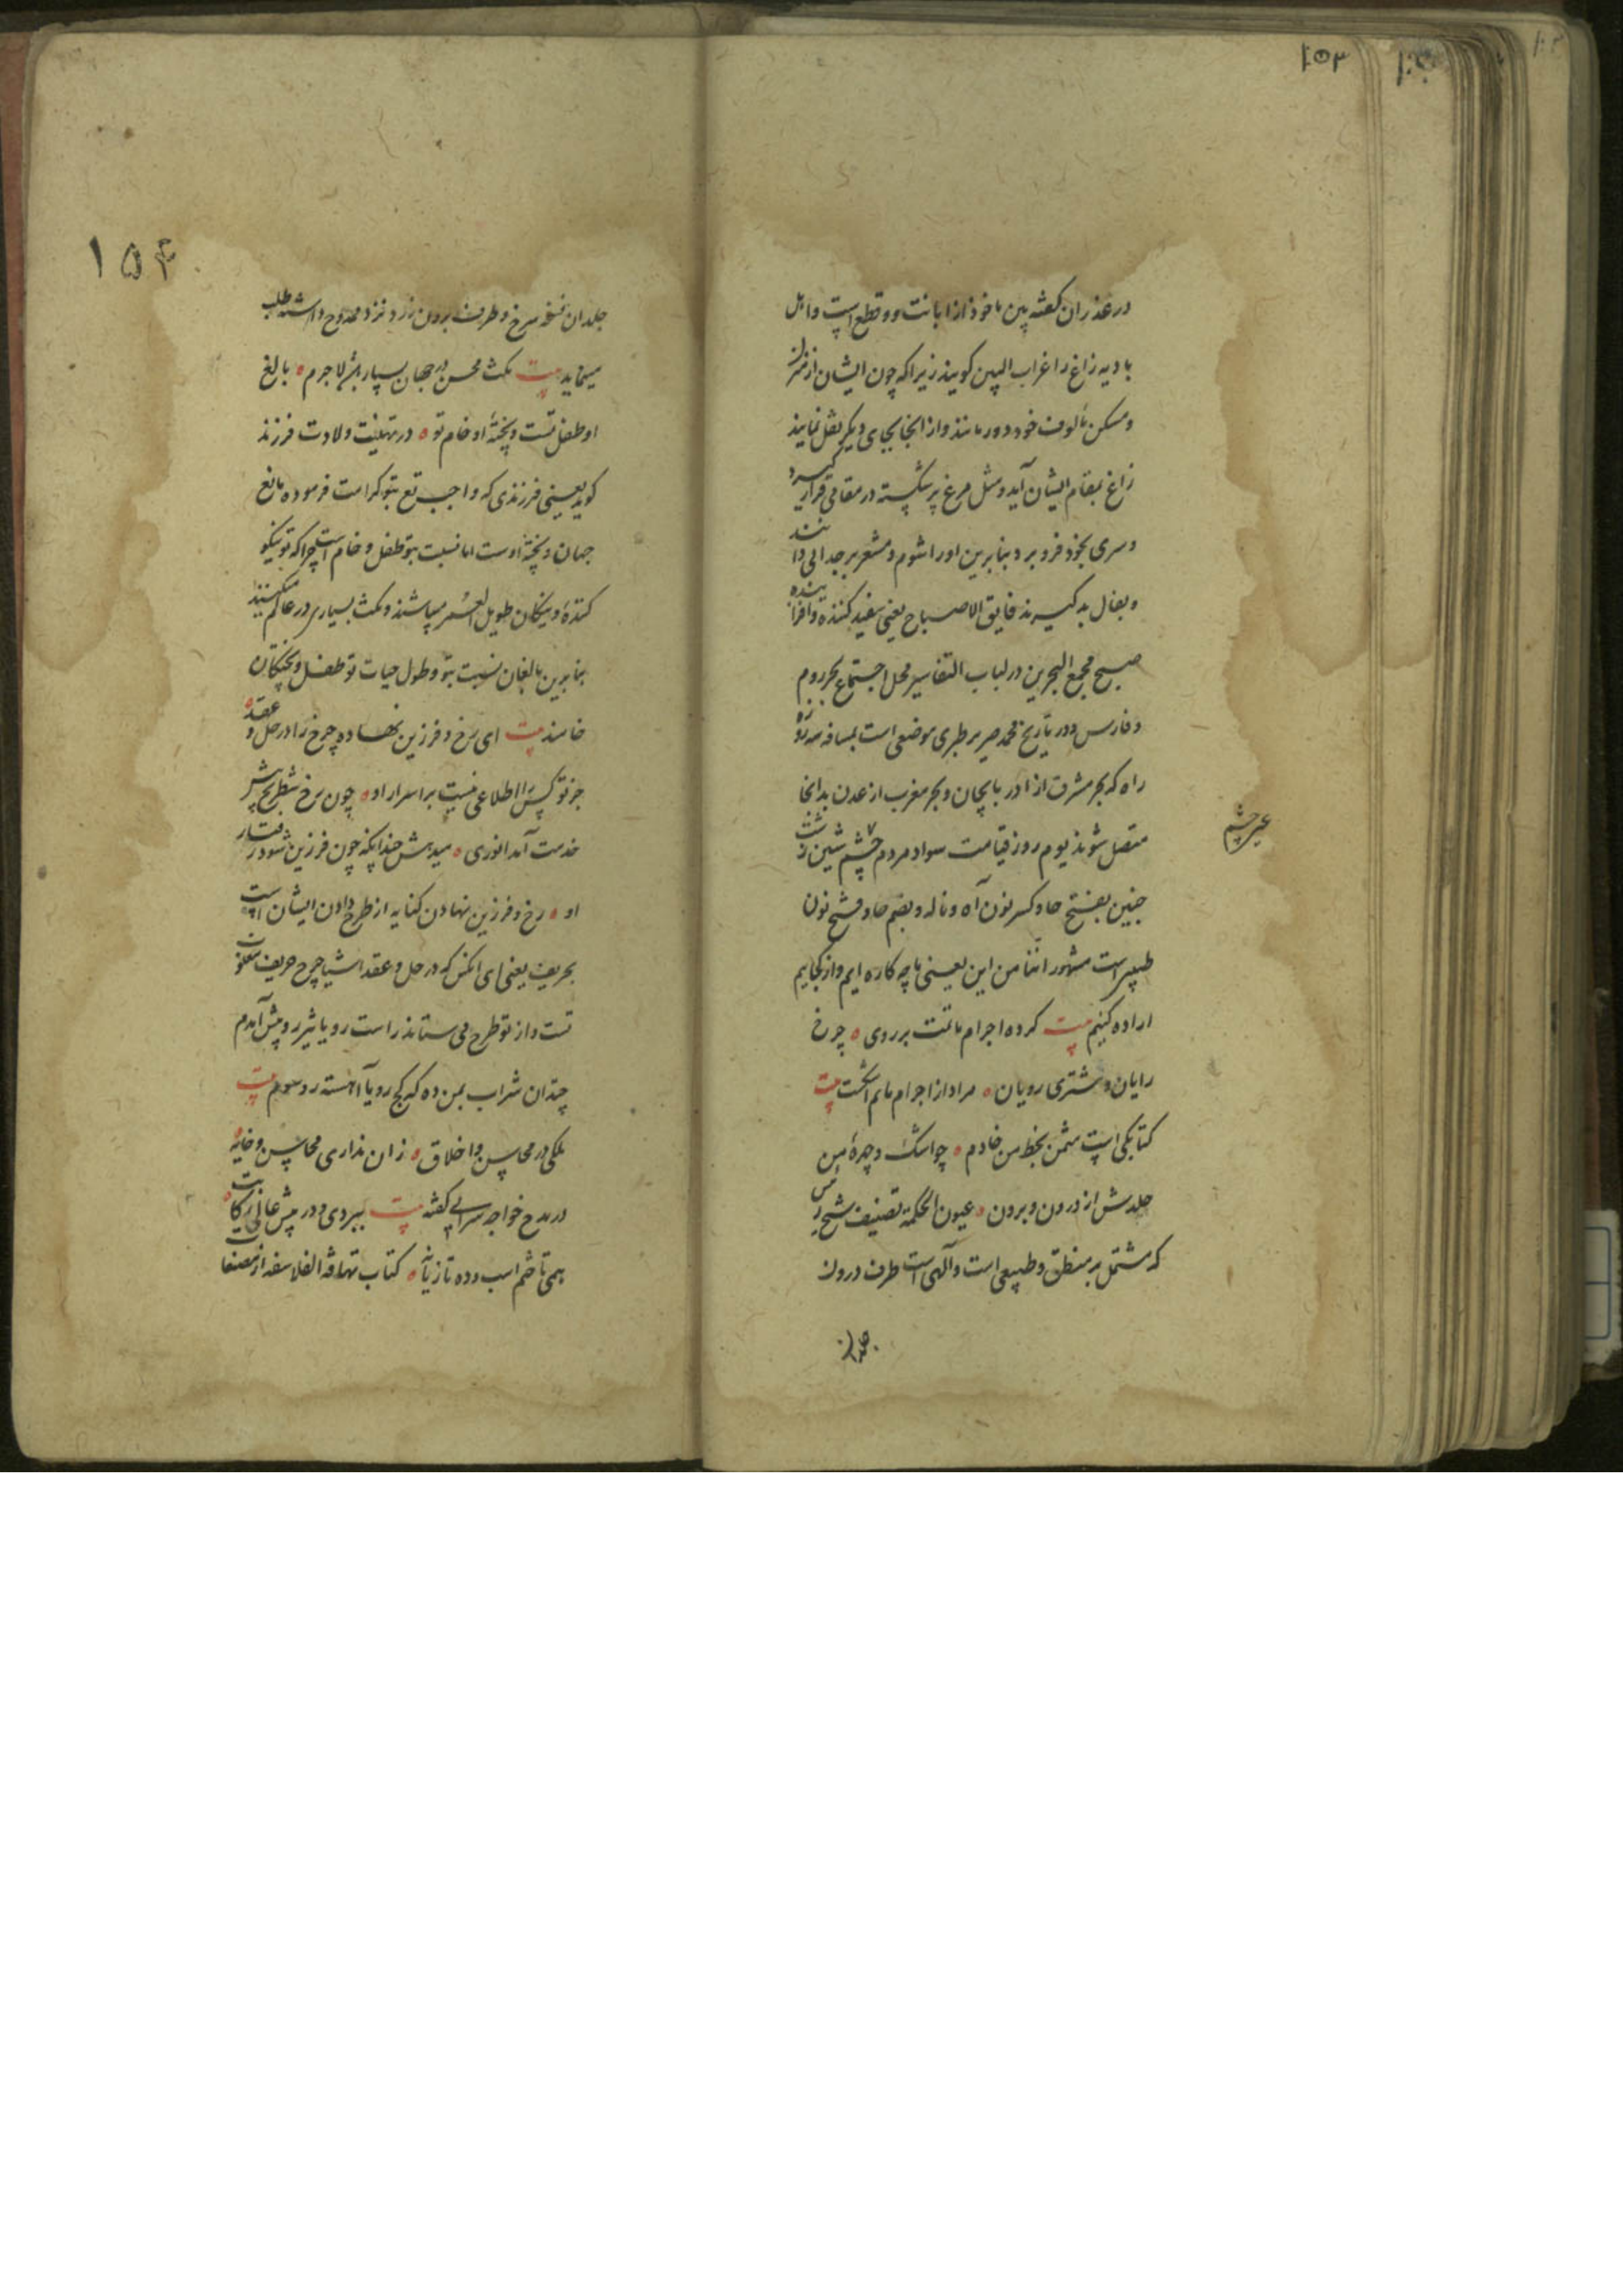 ۱۵۳
در عذر آن گفته بین ماخوذ از ابانت و قطع است و اهل
بادیه زاغ را غراب البین گویند زیرا که چون ایشان از منزل
و مسکن مألوف خود دور مانند و از انجا بجای دیگر نقل نمایند
زاغ بمقام ایشان آید و مثل مرغ پر شکسته در مقامی قرار گیرد
و سری بخود فرو برد بنابرین او را شوم و مشعر بر جدائی دانند
و بفال بد گیرند فایق الاصباح یعنی سفید کننده و
صبح مجمع البحرین در لباب التفاسیر محل اجتماع بحر روم
و فارس و در تاریخ محمد جریر طبری موضعی است بمسافه سه روزه
راه که بحر مشرق از اذربایجان و بحر مغرب از عدن بدانجا
متصل شوند یوم روز قیامت سواد مردم چشم شین زشت
حنین بفتح حا و کسر نون آه و ناله و بضم حا و فتح نون
مشهور اننا من این یعنی ما چه کاره ایم و از کجاییم
اراده کنیم بیت کرده اجرام ما تنت بر روی ه چرخ
رایان و مشتری رویان ه مراد از اجرام مانم است بیت
کتابکی است مثمن بخط من خادم ه چو اشک و چهره من
جلدش از درون و برون ه عیون الحکمة تصنیف شیخ رئیس
که مشتمل بر منطق و طبیعی است و آلهی است طرف درون
جلدان
عیر چشم
۱۵۴
جلد ان نسخه سرخ و طرف برون زرد نزد ممدوح داشته طلب
مینماید بیت مکث محسن در جهان بسیار باشد لاجرم ه بالغ
او طفل تست و پخته او خام تو ه در تهنیت ولادت فرزند
گوید یعنی فرزندی که واجب تع بتو کرامت فرموده بالغ
جهان و پخته اوست اما نسبت بتو طفل و خام است چرا که تو نیکو
کننده و نیکان طویل العمر میباشند و مکث بسیاری در عالم میکنند
بنابرین بالغان نسبت بتو و طول حیات تو طفل و پختگان
خامند بیت ای رخ و فرزین نهاده چرخ را در حل و عقد ه
جز تو کس را اطلاعی نیست بر اسرار او ه چون رخ شطرنج پیش
خدمت آمد انوری ه میدهش چندانکه چون فرزین شود رفتار
او ه رخ و فرزین نهادن کنایه از طرح دادن ایشان است
بحریف یعنی ای آنکس که در حل و عقد اشیا چرخ حریف مغلوب
تست و از تو طرح می ستاند راست رو یا تیر رو پیش آمدم
چندان شراب بمن ده که کج رو یا آهسته رو شوم بیت
ملکی در محاسن و اخلاق ه زان نداری محاسن و خایه ه
در مدح خواجه سرایی گفته بیت ببردی و در پیش عالی رکابت ه
همی تا ختم اسب و ده تازیانه ه کتاب تهافة الفلاسفه از مصنفات